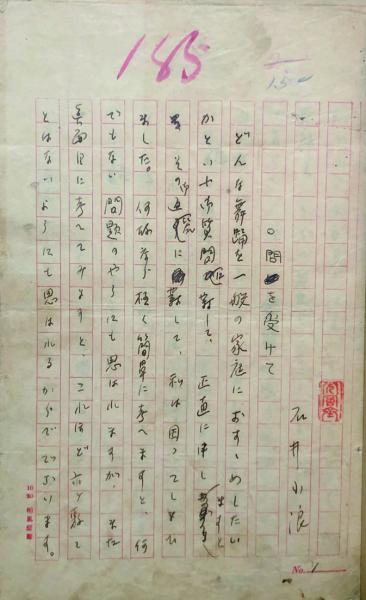 185
15
石井小浪
○問を受けて
どんな舞踊を一般の家庭におすゝめしたい
かといふ御質問に対して、正直に申しますと
その返答に難して、私は困つてしまひ
ました。何故なら極く簡単に考へますと、何
でもない問題のやうにも思はれますが、また
真面目に考へてみますと、これほど六ヶ敷し
ことはないようにも思はれるからでございます。
10
20
相馬屋製
No. 1